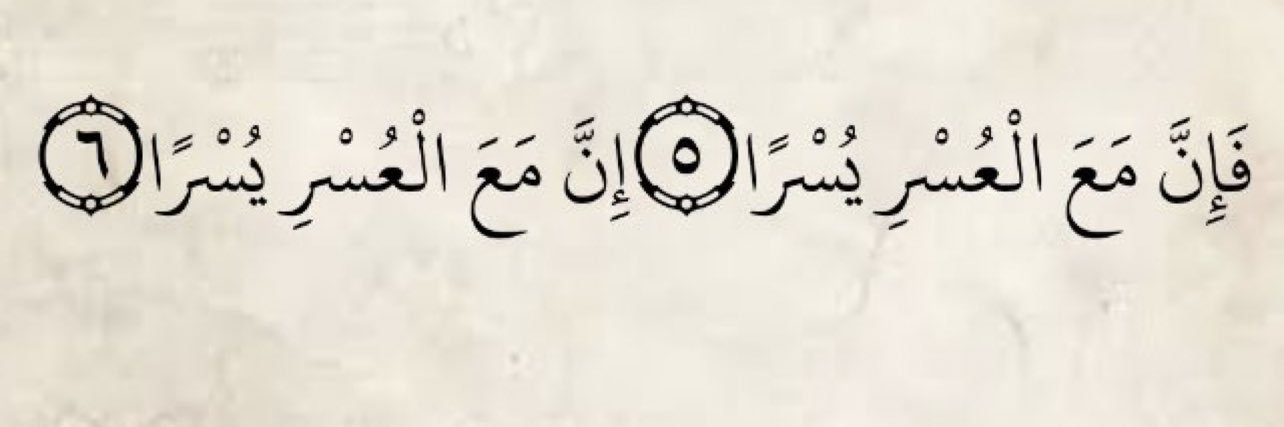 فَإِنَّ مَعَ الْعُسْرِ يُسْرًا ٥ إِنَّ مَعَ الْعُسْرِ يُسْرًا ٦